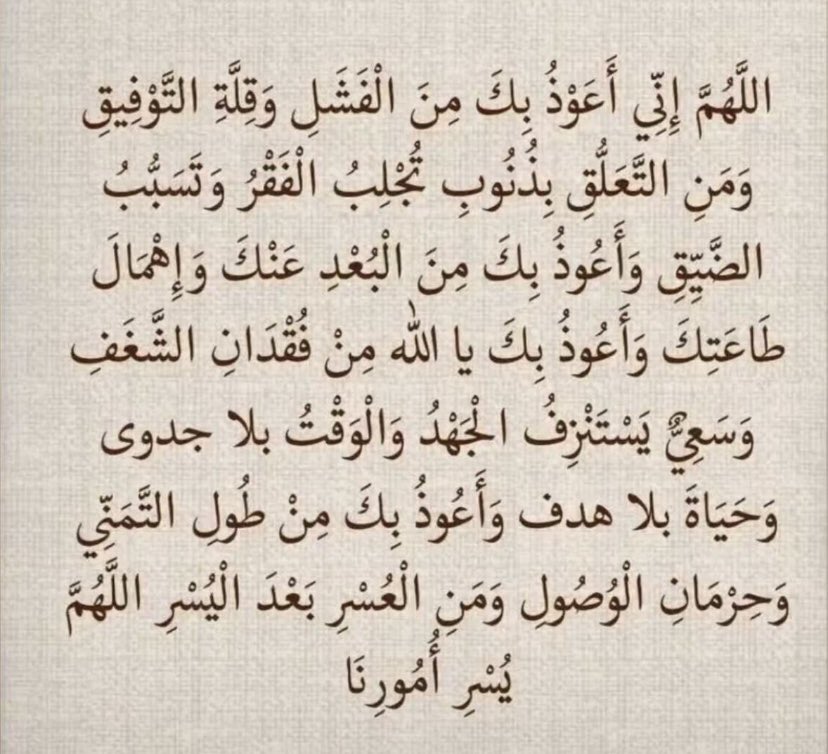 اللَّهُمَّ إِنِّي أَعَوْذُ بِكَ مِنَ الْفَشَلِ وَقِلَّةِ التَّوْفِيقِ
وَمَنِ التَّعَلُّقِ بِذُنُوبِ تُجْلِبُ الْفَقْرُ وَتَسَبُّبُ
الضَّيِّقِ وَأَعُوذُ بِكَ مِنَ الْبُعْدِ عَنْكَ وَإِهْمَالَ
طَاعَتِكَ وَأَعُوذُ بِكَ يا الله مِنْ فُقْدَانِ الشَّغَفِ
وَسَعِيٌّ يَسْتَنْزِفُ الْجَهْدُ وَالْوَقْتُ بلا جدوى
وَحَيَاةَ بلا هدف وَأَعُوذُ بِكَ مِنْ طُولِ التَّمَنِّي
وَحِرْمَانِ الْوُصُولِ وَمَنِ الْعُسْرِ بَعْدَ الْيُسْرِ اللَّهُمَّ
يُسْرِ أُمُورِنَا